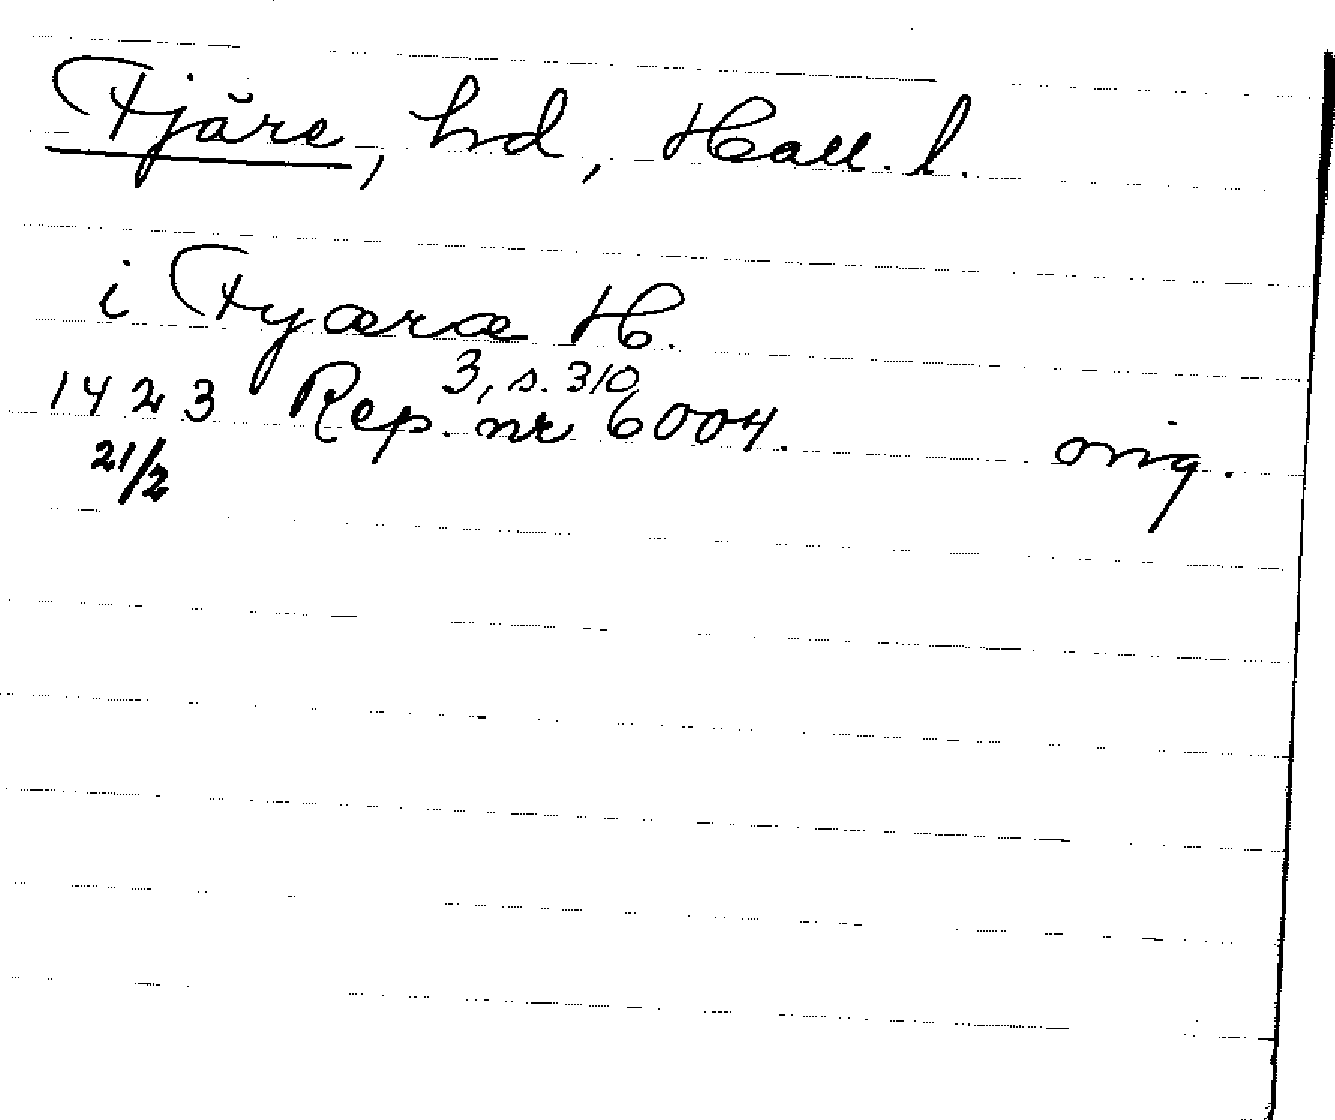 Fjäre, hd, Hall. l.
i Fyæræ H.
3, s. 310
1423 Rep. nr 6004. orig.
21/2